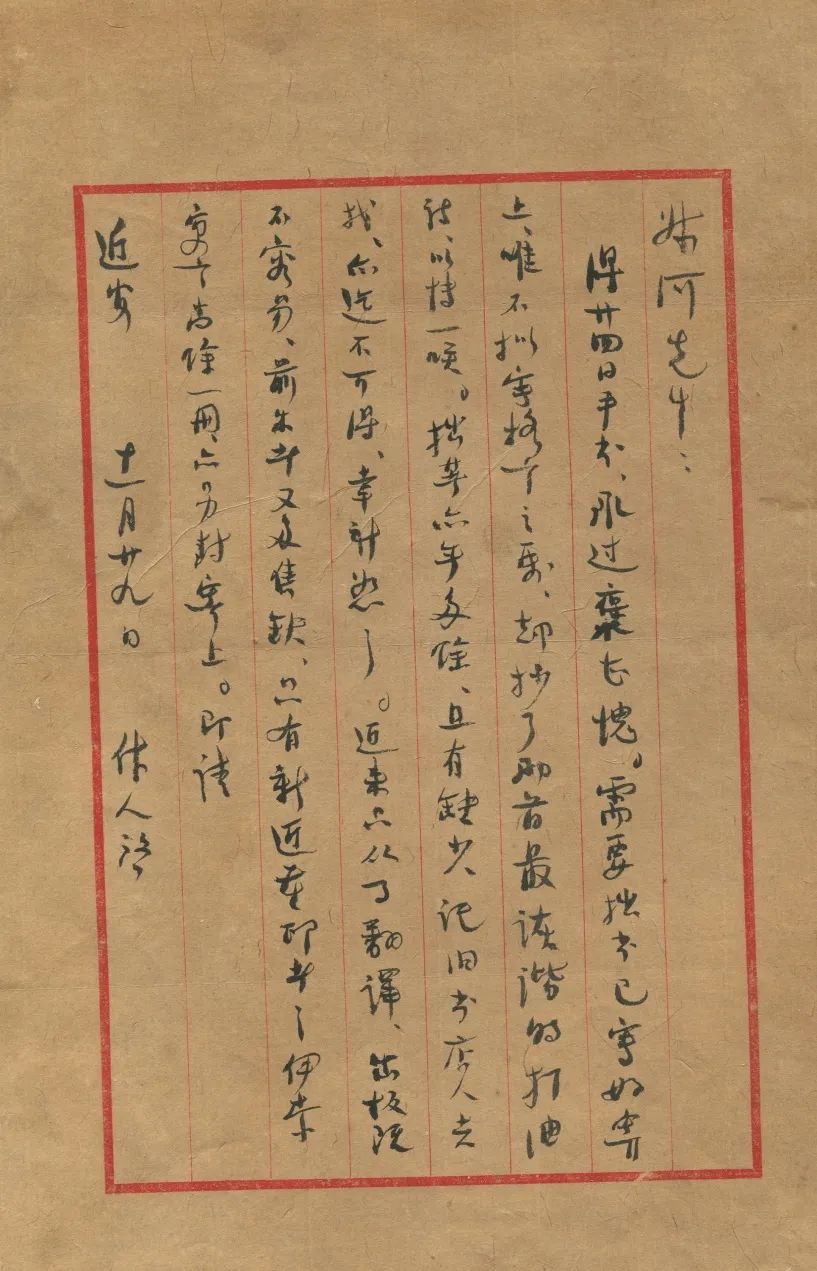 河先生：
得廿四日手书、承过褒甚愧。需要拙书已写好寄
上、唯不拟写格言之类、却抄了两首最诙谐的打油
诗、以博一唉。拙著亦年多馀、且有缺少、记旧书店人去
找、亦迄不可得、幸祈恕之。近来只从事翻译、出板既
不容易、前出者又多售缺、只有新近重印者之伊索
寓言尚馀一册、亦另封寄上。即请
近安　十一月廿九日　作人启